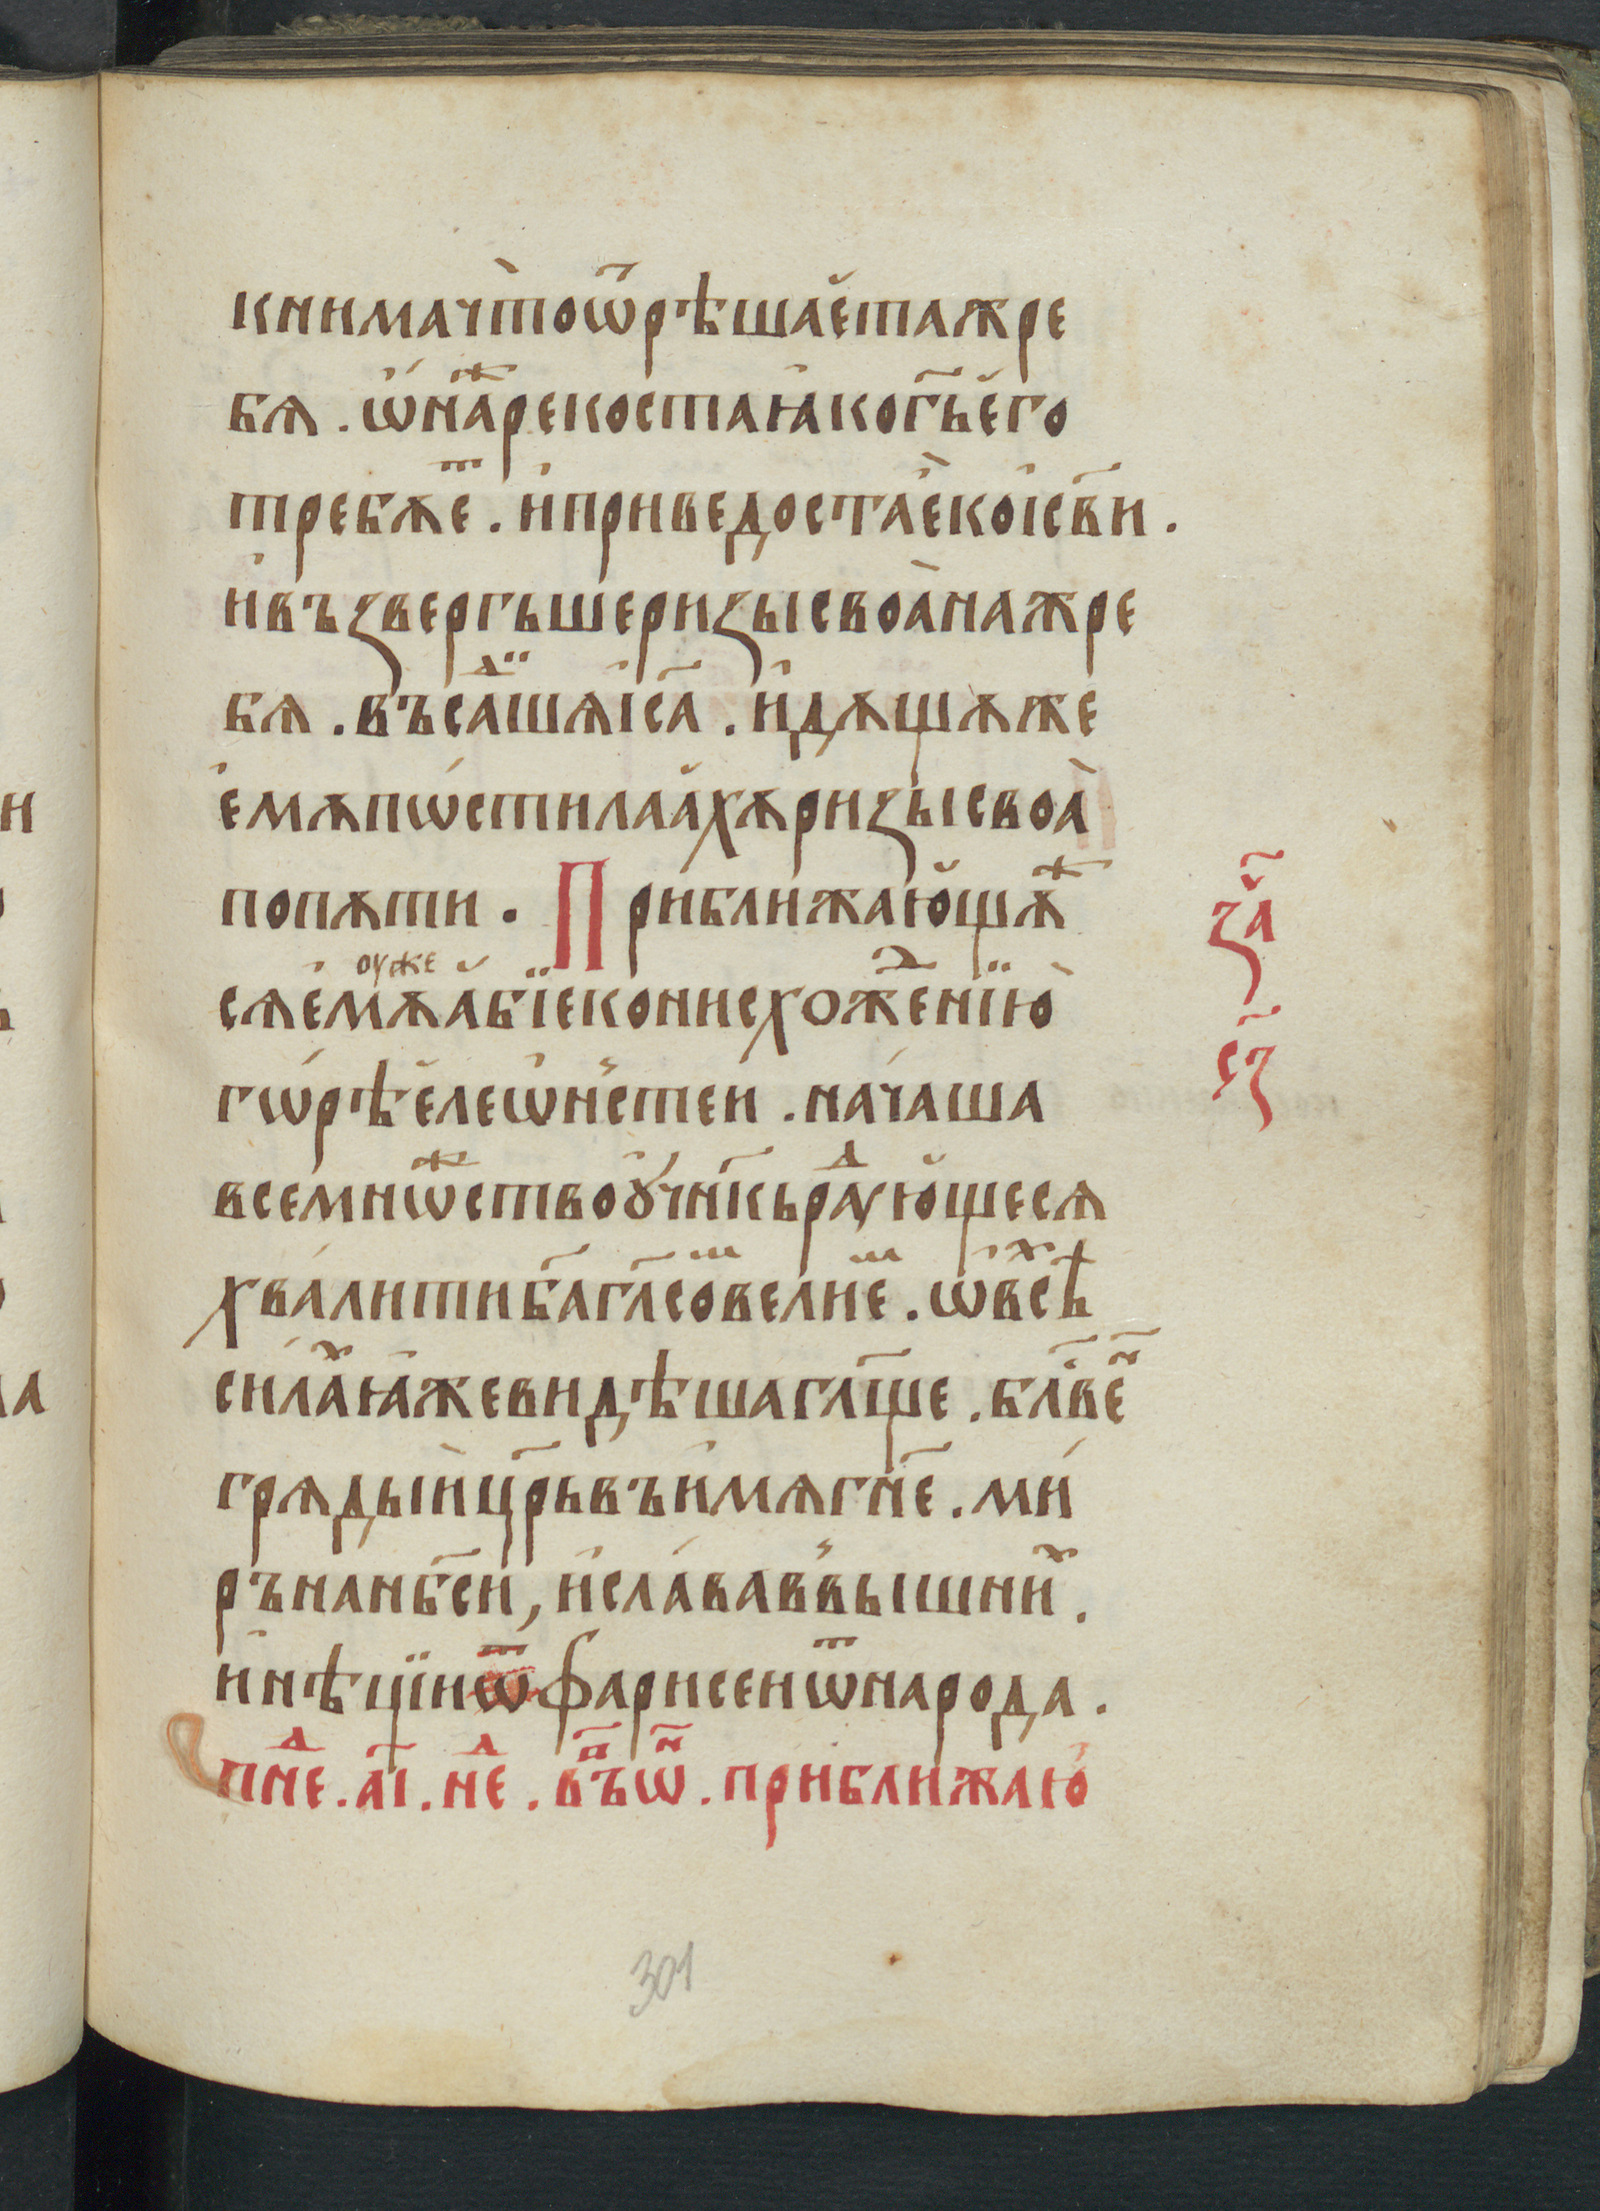 книмачто̀ѿрѣшаӗтажре
бѧ . ѡ҆́наⷤрекостаꙗ҆когⷭ҇ьє҆го
требѫеⷮ . и҆приведостаѐкоі҆св҃и .
и҆въꙁвергъшериꙁысвоа̀нажре
бѧ . въсаⷣ̈шѧі҆са҃ . и҆дѫщѫже
є҆мѫпѡ́стилаӑхѫриꙁысвоа̀
попѫти . Приближаю̆щѫⷤ
сѧє҆мѫоужеабїекониⷭхоⷤⷣенїю̀
гѡ́рѣӗлеѡ҆нⷭ҇стеи . на́чаша
всемнѡⷤствоꙋ҆чн҃кьраⷣꙋю̆щесѧ
хва́литиба҃гл҃соⷨвелиеⷨ . ѡ҆всѣⷯ
сила́ⷯꙗ҆жевидѣшагл҃ще . бл҃ве҃ⷩ
грѧдыѝцр҃ьвъи҆мѧгн҃е . ми́
ръна́нб҃си , и҆сла́вав҆вышниⷯ .
и҆нѣцїиѿфарисеиѿнарода .
пнⷣе . аі҃ . неⷣ . вⷫ҇ъѡⷩ҇ . приближаю҆
за҃ч
сз҃
301